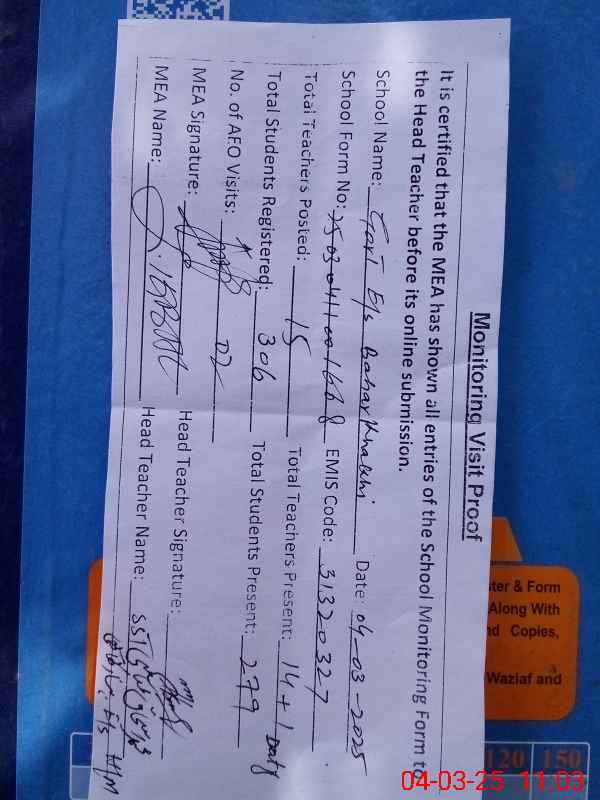 Monitoring Visit Proof
It is certified that the MEA has shown all entries of the School Monitoring Form to
the Head Teacher before its online submission.
School Name: Govt E/s Bahar Date: 04-03-2025
School Form No: EMIS Code: 31320327
Total Teachers Posted: 15 Total Teachers Present: 14 + 1 Duty
Total Students Registered: 306 Total Students Present: 279
No. of AFO Visits: 02
MEA Signature: Head Teacher Signature:
MEA Name: Head Teacher Name: SST
ster & Form
Along With
nd Copies,
Waziaf and
120 150
04-03-25 11:03